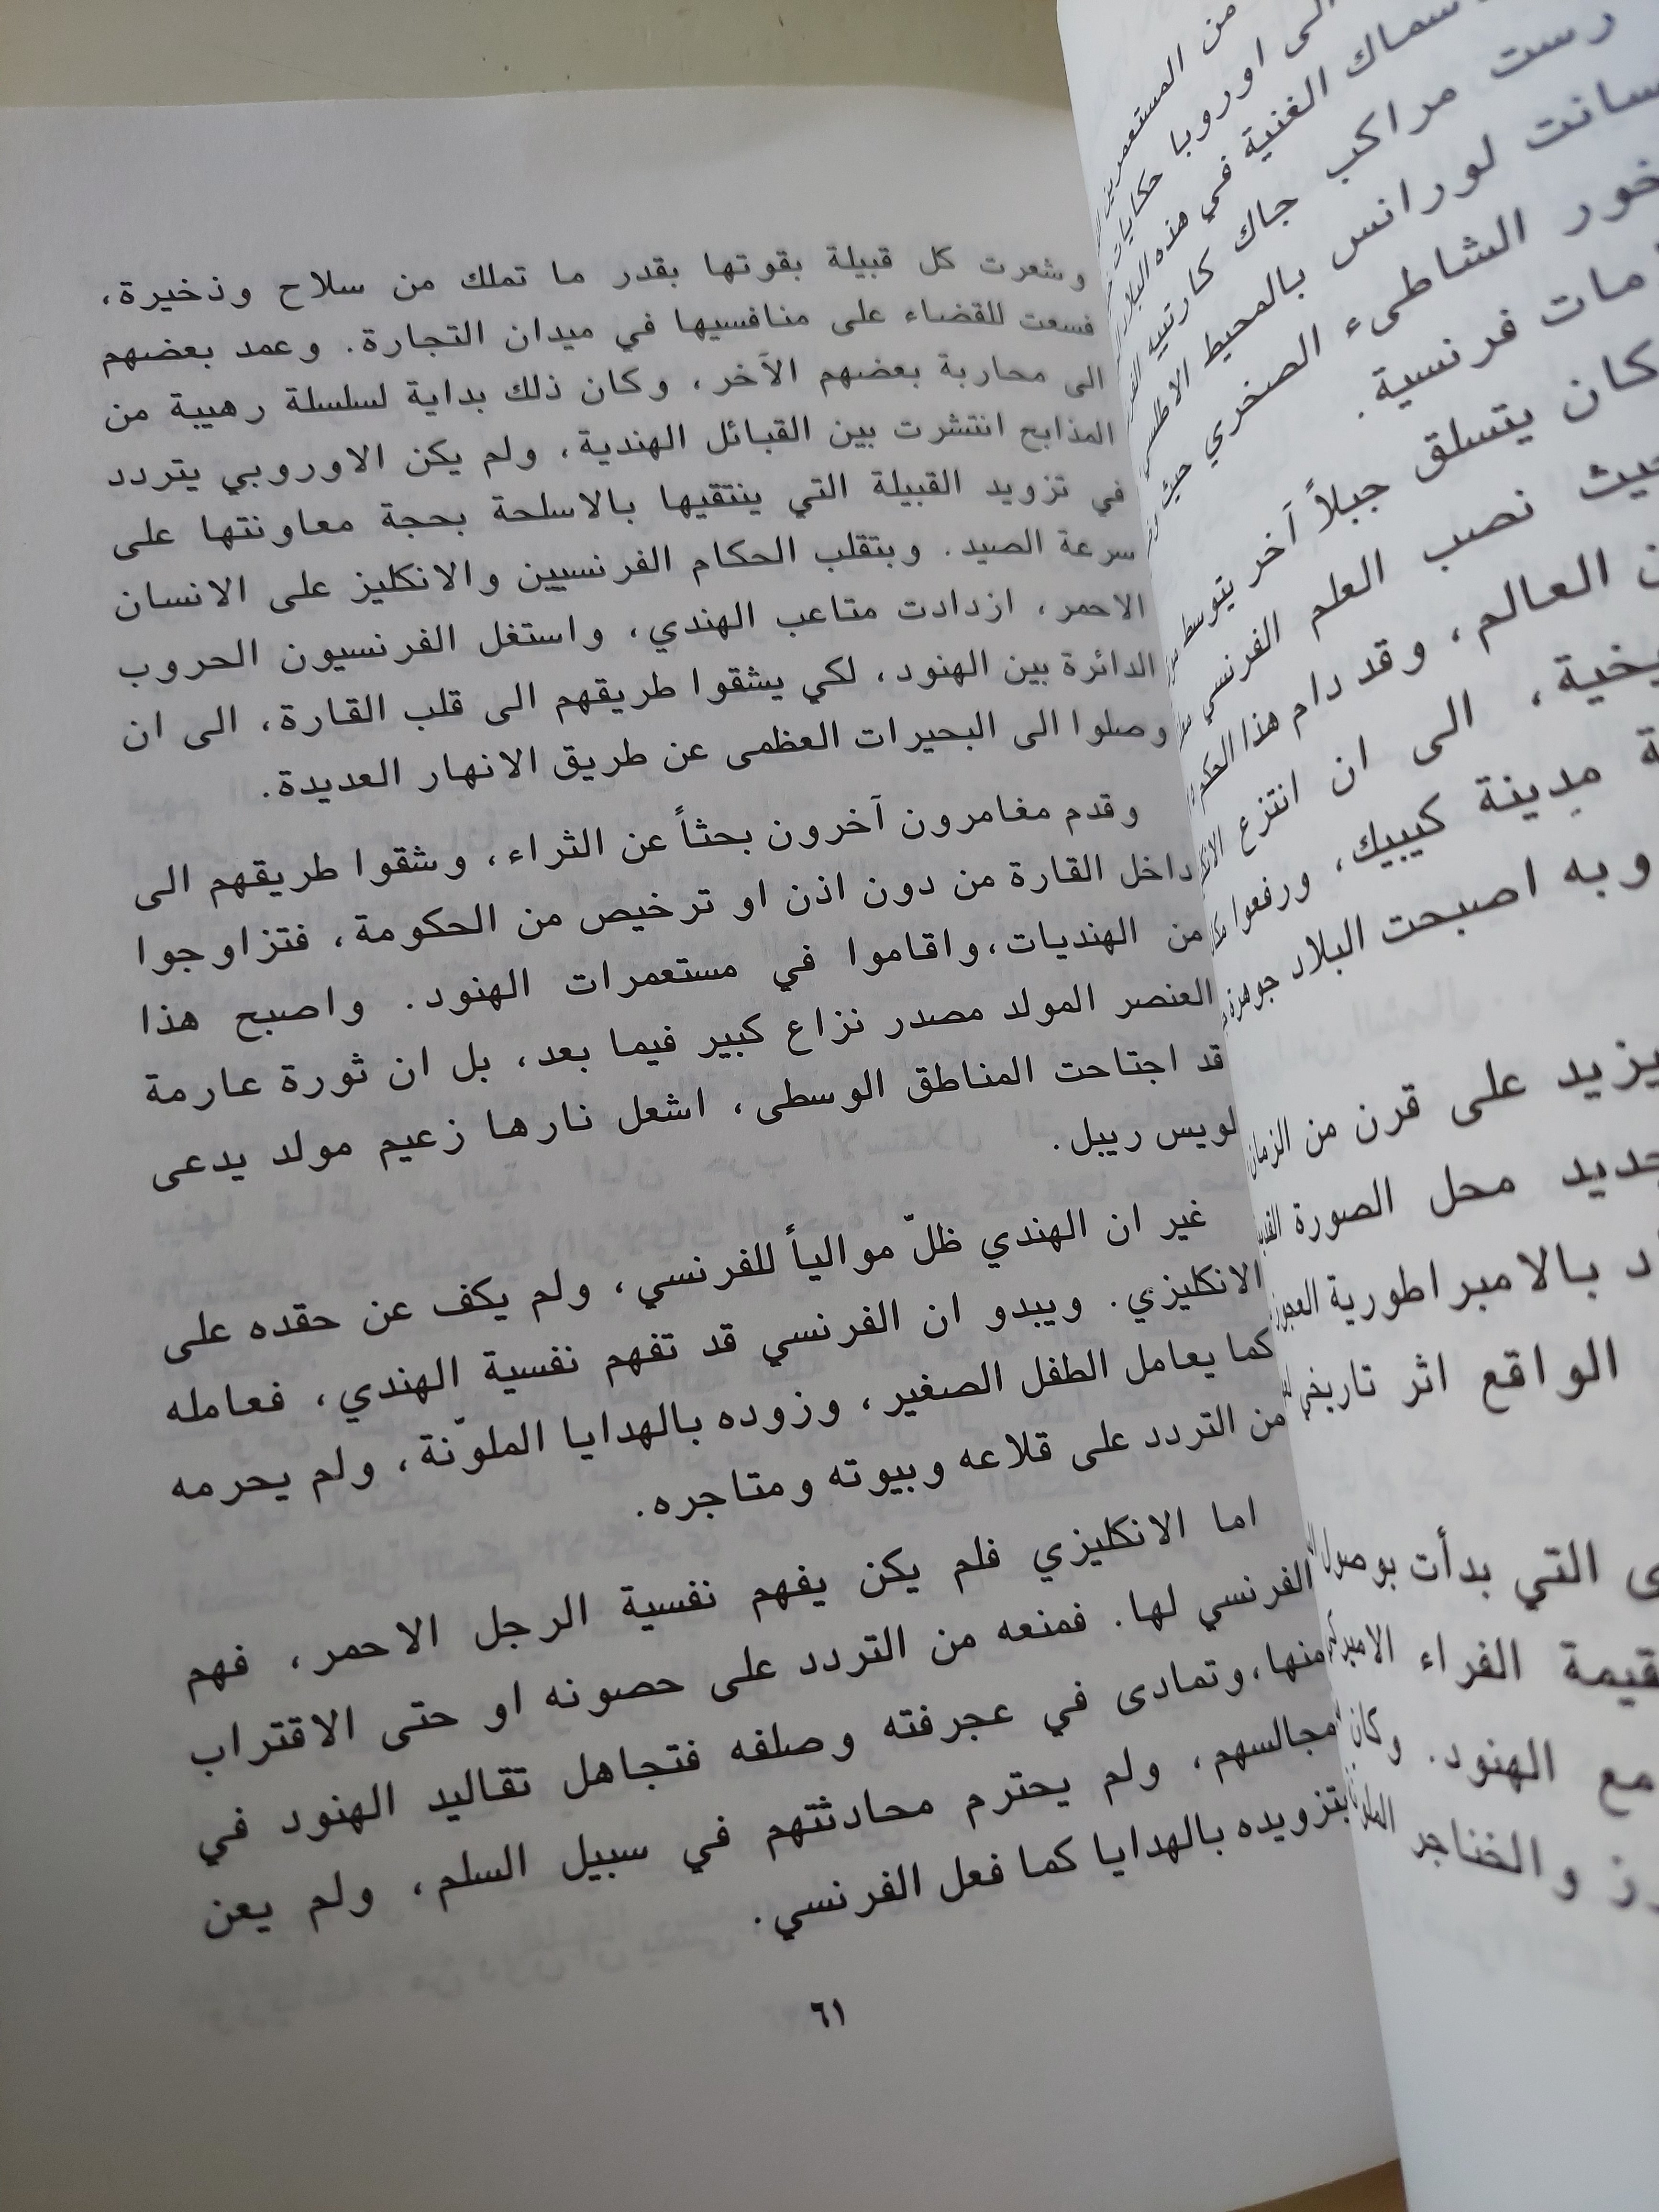 من المستعمرين
الى اوروبا حكايات
سماك الغنية في هذه البلاد
رست مراكب جاك كارتييه
سانت لورانس بالمحيط الاطلسي
خور الشاطىء الصخري حيث
مات فرنسية.
كان يتسلق جبلاً آخر يتوسط
حيث نصب العلم الفرنسي
العالم، وقد دام هذا الحكم
يخية، الى ان انتزع
مدينة كيبيك، ورفعوا
وبه اصبحت البلاد جوهرة
يزيد على قرن من الزمان
جديد محل الصورة
د بالامبراطورية العجوز
الواقع اثر تاريخي
ى التي بدأت بوصول
قيمة الفراء
مع الهنود. وكان
رز والخناجر
وشعرت كل قبيلة بقوتها بقدر ما تملك من سلاح وذخيرة،
فسعت للقضاء على منافسيها في ميدان التجارة. وعمد بعضهم
الى محاربة بعضهم الآخر، وكان ذلك بداية لسلسلة رهيبة من
المذابح انتشرت بين القبائل الهندية، ولم يكن الاوروبي يتردد
في تزويد القبيلة التي ينتقيها بالاسلحة بحجة معاونتها على
سرعة الصيد. وبتقلب الحكام الفرنسيين والانكليز على الانسان
الاحمر، ازدادت متاعب الهندي، واستغل الفرنسيون الحروب
الدائرة بين الهنود، لكي يشقوا طريقهم الى قلب القارة، الى ان
وصلوا الى البحيرات العظمى عن طريق الانهار العديدة.
وقدم مغامرون آخرون بحثاً عن الثراء، وشقوا طريقهم الى
داخل القارة من دون اذن او ترخيص من الحكومة، فتزاوجوا
من الهنديات،واقاموا في مستعمرات الهنود. واصبح هذا
العنصر المولد مصدر نزاع كبير فيما بعد، بل ان ثورة عارمة
قد اجتاحت المناطق الوسطى، اشعل نارها زعيم مولد يدعى
لويس رييل.
غير ان الهندي ظلّ موالياً للفرنسي، ولم يكف عن حقده على
الانكليزي. ويبدو ان الفرنسي قد تفهم نفسية الهندي، فعامله
كما يعامل الطفل الصغير، وزوده بالهدايا الملوّنة، ولم يحرمه
من التردد على قلاعه وبيوته ومتاجره.
اما الانكليزي فلم يكن يفهم نفسية الرجل الاحمر، فهم
الفرنسي لها. فمنعه من التردد على حصونه او حتى الاقتراب
منها،وتمادى في عجرفته وصلفه فتجاهل تقاليد الهنود في
مجالسهم، ولم يحترم محادثتهم في سبيل السلم، ولم يعن
بتزويده بالهدايا كما فعل الفرنسي.
٦١